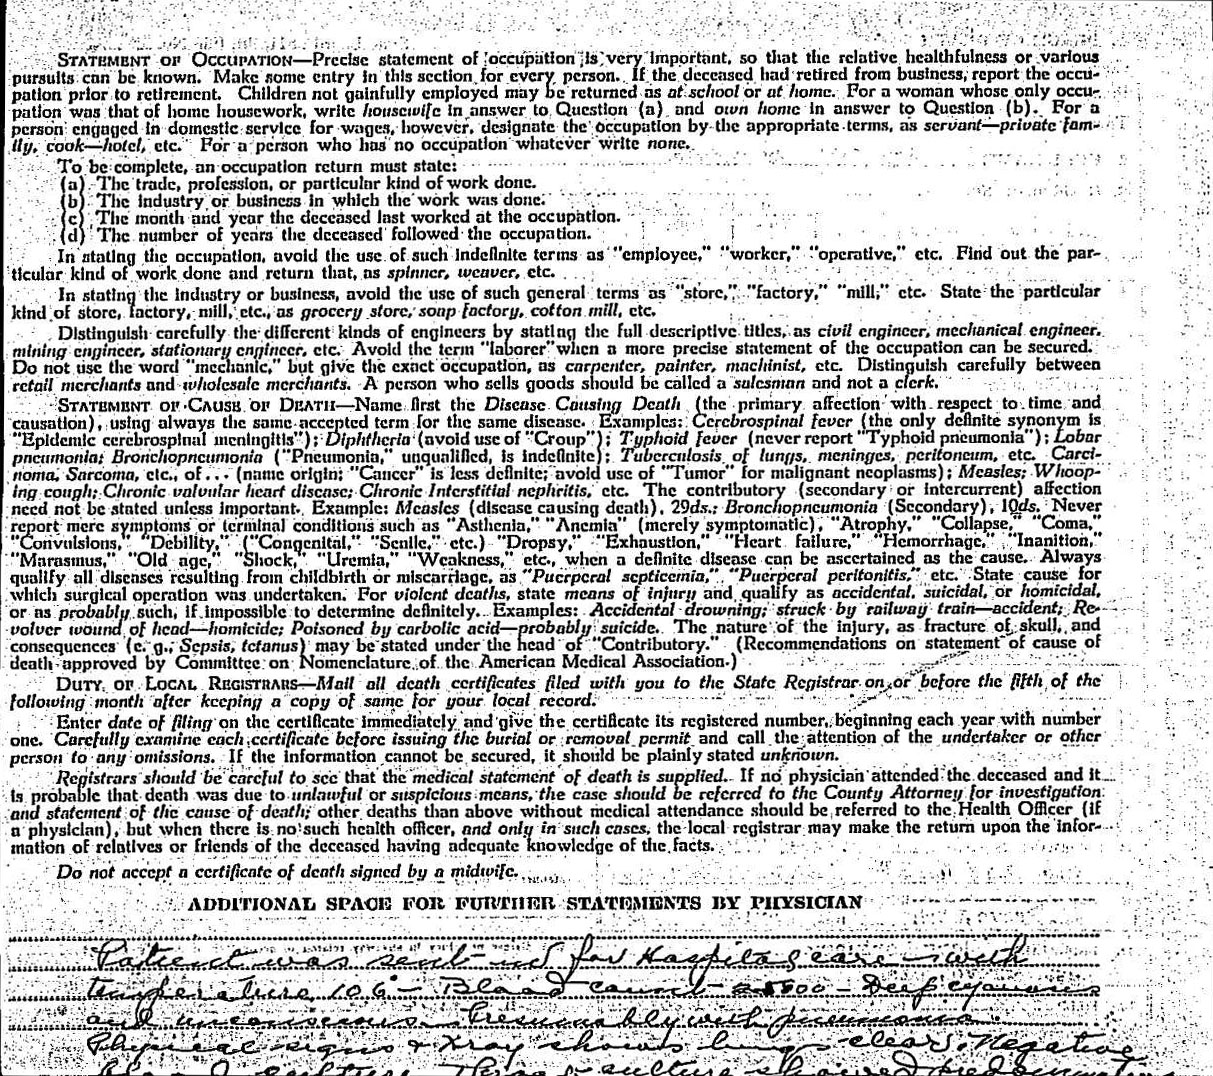 STATEMENT OF OCCUPATION—Precise statement of occupation is very important, so that the relative healthfulness or various
pursuits can be known. Make some entry in this section for every person. If the deceased had retired from business, report the occu-
pation prior to retirement. Children not gainfully employed may be returned as at school or at home. For a woman whose only occu-
pation was that of home housework, write housewife in answer to Question (a) and own home in answer to Question (b). For a
person engaged in domestic service for wages, however, designate the occupation by the appropriate terms, as servant—private fam-
ily, cook—hotel, etc. For a person who has no occupation whatever write none.
To be complete, an occupation return must state:
(a) The trade, profession, or particular kind of work done.
(b) The industry or business in which the work was done.
(c) The month and year the deceased last worked at the occupation.
(d) The number of years the deceased followed the occupation.
In stating the occupation, avoid the use of such indefinite terms as "employee," "worker," "operative," etc. Find out the par-
ticular kind of work done and return that, as spinner, weaver, etc.
In stating the industry or business, avoid the use of such general terms as "store," "factory," "mill," etc. State the particular
kind of store, factory, mill, etc., as grocery store, soap factory, cotton mill, etc.
Distinguish carefully the different kinds of engineers by stating the full descriptive titles, as civil engineer, mechanical engineer,
mining engineer, stationary engineer, etc. Avoid the term "laborer" when a more precise statement of the occupation can be secured.
Do not use the word "mechanic," but give the exact occupation, as carpenter, painter, machinist, etc. Distinguish carefully between
retail merchants and wholesale merchants. A person who sells goods should be called a salesman and not a clerk.
STATEMENT OF CAUSE OF DEATH—Name first the Disease Causing Death (the primary affection with respect to time and
causation), using always the same accepted term for the same disease. Examples: Cerebrospinal fever (the only definite synonym is
"Epidemic cerebrospinal meningitis"); Diphtheria (avoid use of "Croup"); Typhoid fever (never report "Typhoid pneumonia"); Lobar
pneumonia; Bronchopneumonia ("Pneumonia," unqualified, is indefinite); Tuberculosis of lungs, meninges, peritoneum, etc. Carci-
noma, Sarcoma, etc., of . . . (name origin; "Cancer" is less definite; avoid use of "Tumor" for malignant neoplasms); Measles; Whoop-
ing cough; Chronic valvular heart disease; Chronic Interstitial nephritis, etc. The contributory (secondary or intercurrent) affection
need not be stated unless important. Example: Measles (disease causing death), 29ds.; Bronchopneumonia (Secondary), 10ds. Never
report mere symptoms or terminal conditions such as "Asthenia," "Anemia" (merely symptomatic), "Atrophy," "Collapse," "Coma,"
"Convulsions," "Debility," ("Congenital," "Senile," etc.) "Dropsy," "Exhaustion," "Heart failure," "Hemorrhage," "Inanition,"
"Marasmus," "Old age," "Shock," "Uremia," "Weakness," etc., when a definite disease can be ascertained as the cause. Always
qualify all diseases resulting from childbirth or miscarriage, as "Puerperal septicemia," "Puerperal peritonitis," etc. State cause for
which surgical operation was undertaken. For violent deaths, state means of injury and qualify as accidental, suicidal, or homicidal,
or as probably such, if impossible to determine definitely. Examples: Accidental drowning; struck by railway train—accident; Re-
volver wound of head—homicide; Poisoned by carbolic acid—probably suicide. The nature of the injury, as fracture of skull, and
consequences (e. g., Sepsis, tetanus) may be stated under the head of "Contributory." (Recommendations on statement of cause of
death approved by Committee on Nomenclature of the American Medical Association.)
DUTY OF LOCAL REGISTRARS—Mail all death certificates filed with you to the State Registrar on or before the fifth of the
following month after keeping a copy of same for your local record.
Enter date of filing on the certificate immediately and give the certificate its registered number, beginning each year with number
one. Carefully examine each certificate before issuing the burial or removal permit and call the attention of the undertaker or other
person to any omissions. If the information cannot be secured, it should be plainly stated unknown.
Registrars should be careful to see that the medical statement of death is supplied. If no physician attended the deceased and it
is probable that death was due to unlawful or suspicious means, the case should be referred to the County Attorney for investigation
and statement of the cause of death; other deaths than above without medical attendance should be referred to the Health Officer (if
a physician), but when there is no such health officer, and only in such cases, the local registrar may make the return upon the infor-
mation of relatives or friends of the deceased having adequate knowledge of the facts.
Do not accept a certificate of death signed by a midwife.
ADDITIONAL SPACE FOR FURTHER STATEMENTS BY PHYSICIAN
Patient was sent in for Hospital care – with
temperature 106 – Blood count – Deep cyanosis
and unconscious. Presumably with pneumonia.
Physical signs & Xray shows lungs clear. Negative
Blood culture. Throat culture showed predominating